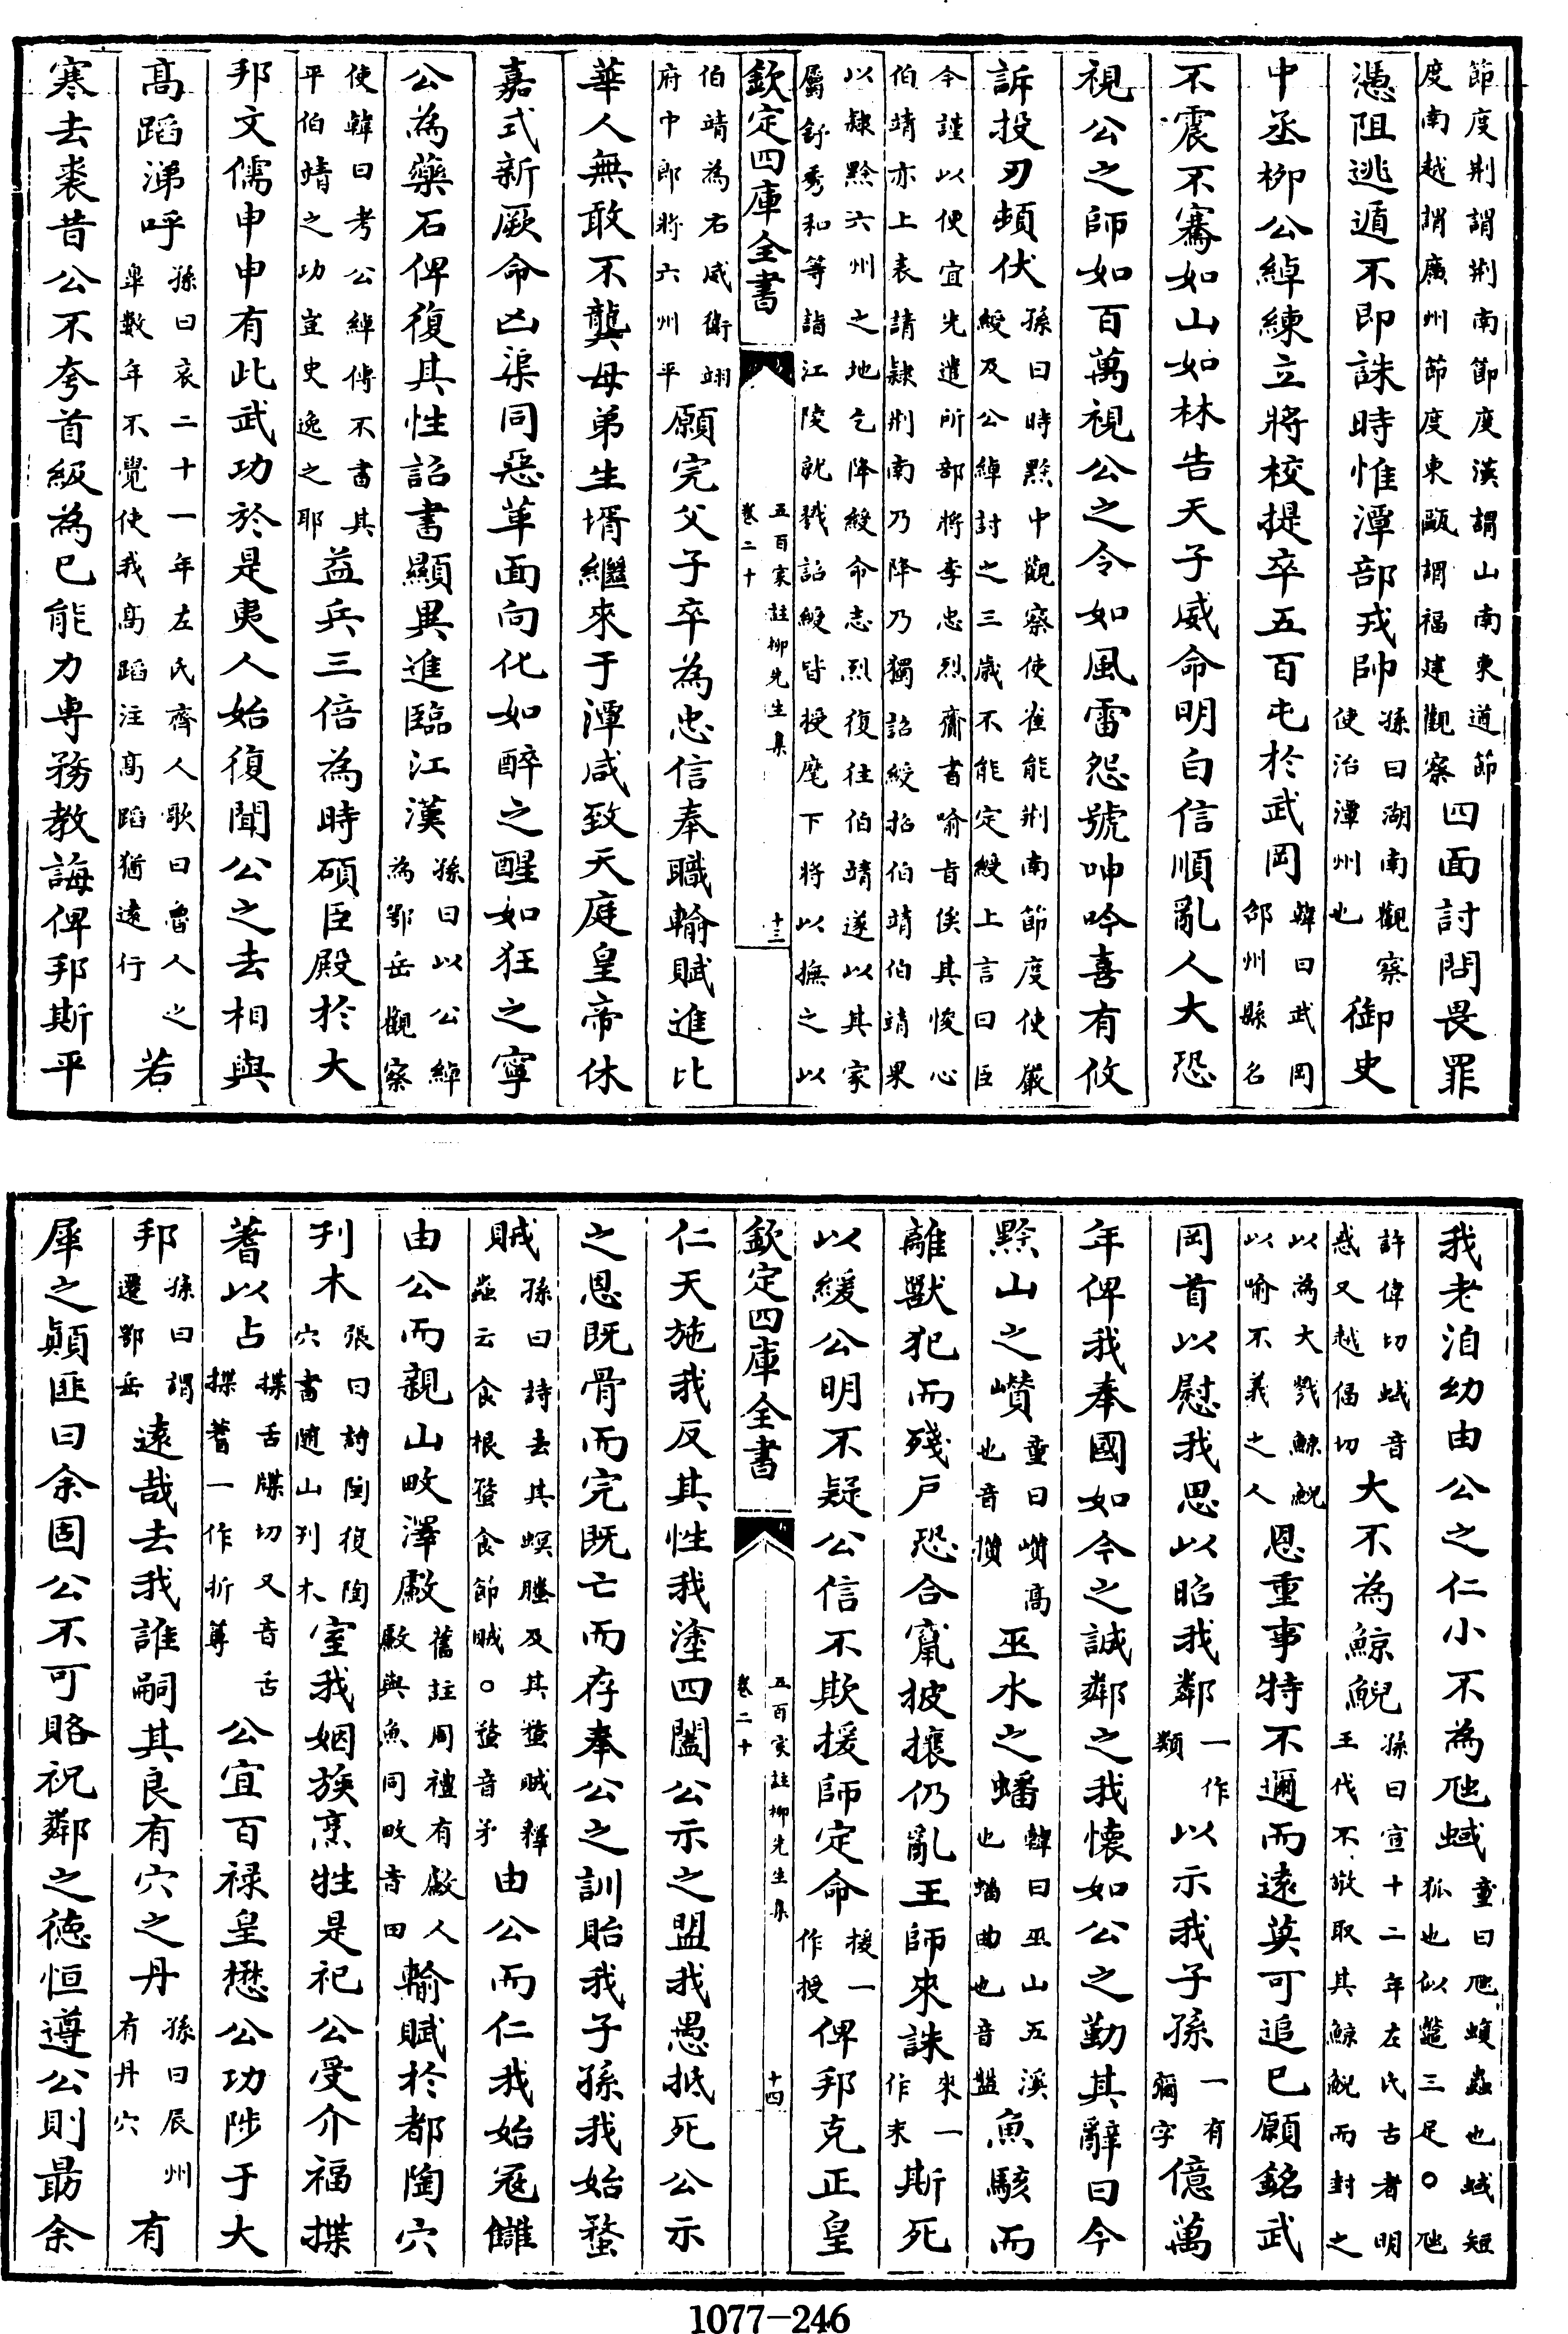 節度荆謂荆南節度漢謂山南東道節
度南越謂廣州節度東甌謂福建觀察
四面討問畏罪
憑阻逃遁不即誅時惟潭部戎帥
孫曰湖南觀察
使治潭州也
御史
中丞柳公綽練立將校提卒五百屯於武岡
韓曰武岡
邵州縣名
不震不騫如山如林告天子威命明白信順亂人大恐
視公之師如百萬視公之令如風雷怨號呻吟喜有攸
訴投刃頓伏
孫曰時黔中觀察使崔能荆南節度使嚴
綬及公綽討之三歲不能定綬上言曰臣
今謹以便宜先遣所部將李忠烈齎書喻旨俟其悛心
伯靖亦上表請隸荆南乃降乃獨詔綬招伯靖伯靖果
以隸黔六州之地乞降綬命志烈復往伯靖遂以其家
屬舒秀和等詣江陵就戮詔綬皆授麾下將以撫之以
欽定四庫全書
五百家註柳先生集
卷二十
十三
伯靖為右威衛翊
府中郎將六州平
願完父子卒為忠信奉職輸賦進比
華人無敢不龔母弟生壻繼來于潭咸致天庭皇帝休
嘉式新厥命凶渠同惡革面向化如醉之醒如狂之寧
公為藥石俾復其性詔書顯異進臨江漢
孫曰以公綽
為鄂岳觀察
使韓曰考公綽傳不書其
平伯靖之功豈史逸之耶
益兵三倍為時碩臣殿於大
邦文儒申申有此武功於是夷人始復聞公之去相與
高蹈涕呼
孫曰哀二十一年左氏齊人歌曰魯人之
臯數年不覺使我高蹈注高蹈猶遠行
若
寒去裘昔公不夸首級為已能力專務教誨俾邦斯平
我老洎幼由公之仁小不為虺蜮
童曰虺蝮蟲也蜮短
狐也似鼈三足○虺
許偉切蜮音
惑又越偪切
大不為鯨鯢
孫曰宣十二年左氏古者明
王伐不敬取其鯨鯢而封之
以為大戮鯨鯢
以喻不義之人
恩重事特不邇而遠莫可追已願銘武
岡首以慰我思以昭我鄰
一作
類
以示我子孫
一有
彌字
億萬
年俾我奉國如令之誠鄰之我懷如公之勤其辭曰今
黔山之巑
童曰巑高
也音攢
巫水之蟠
韓曰巫山五溪
也蟠曲也音盤
魚駭而
離獸犯而殘戶恐合竄披攘仍亂王師來誅
來一
作未
斯死
以緩公明不疑公信不欺援師定命
援一
作授
俾邦克正皇
欽定四庫全書
五百家註柳先生集
卷二十
十四
仁天施我反其性我塗四闔公示之盟我愚抵死公示
之恩既骨而完既亡而存奉公之訓貽我子孫我始蝥
賊
孫曰詩去其螟螣及其蝥賊釋
蟲云食根蝥食節賊○蝥音矛
由公而仁我始寇讎
由公而親山畋澤䱷
舊註周禮有䱷人
䱷與魚同畋音田
輸賦於都陶穴
刊木
張曰詩陶復陶
穴書隨山刊木
室我姻族烹牲是祀公受介福揲
蓍以占
揲舌牒切又音舌
揲蓍一作折蓴
公宜百禄皇懋公功陟于大
邦
孫曰謂
遷鄂岳
遠哉去我誰嗣其良有穴之丹
孫曰辰州
有丹穴
有
犀之顛匪曰余固公不可賂祝鄰之德恒遵公則朂余
1077-246